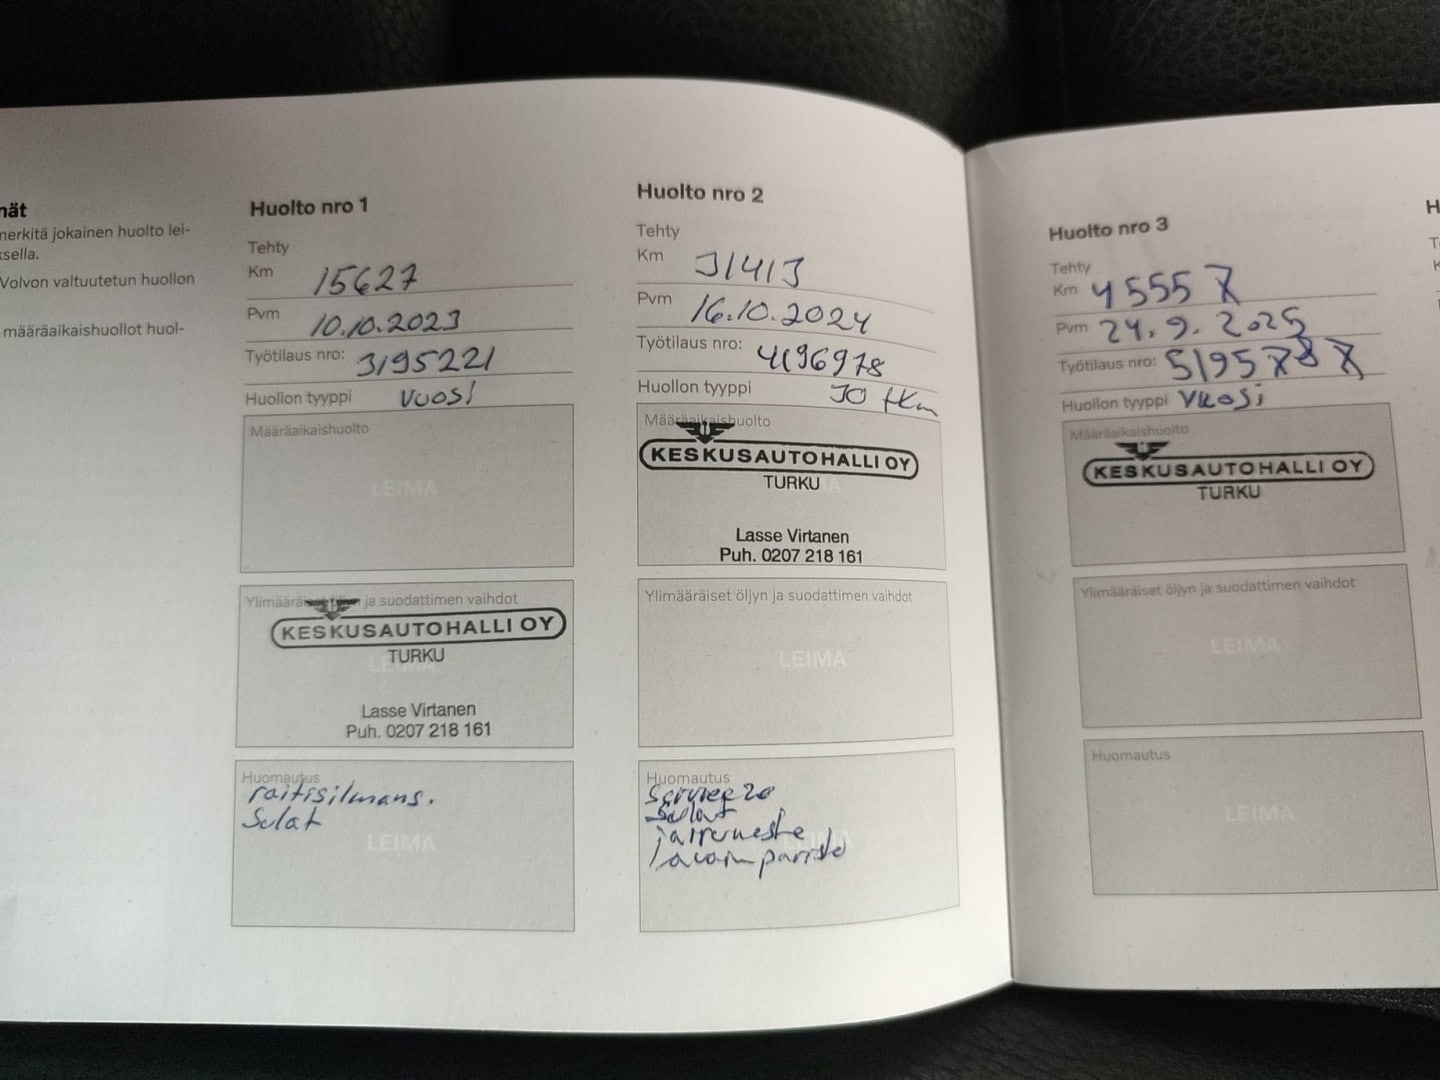 nät
nerkitä jokainen huolto lei-
ksella.
Volvon valtuutetun huollon
määräaikaishuollot huol-
Huolto nro 1
Tehty
Km 15627
Pvm 10.10.2023
Työtilaus nro: 3195221
Huollon tyyppi vuosi
Määräaikaishuolto
LEIMA
Ylimääräiset öljyn ja suodattimen vaihdot
KESKUSAUTOHALLI OY
TURKU
LEIMA
Lasse Virtanen
Puh. 0207 218 161
Huomautus
raitisilmans.
Sulat
LEIMA
Huolto nro 2
Tehty
Km 31413
Pvm 16.10.2024
Työtilaus nro: 4196978
Huollon tyyppi 30 tkm
Määräaikaishuolto
KESKUSAUTOHALLI OY
TURKU
Lasse Virtanen
Puh. 0207 218 161
Ylimääräiset öljyn ja suodattimen vaihdot
LEIMA
Huomautus
Sulat
jarruneste
Huolto nro 3
Tehty
Km 45557
Pvm 24.9.2025
Työtilaus nro: 5195787
Huollon tyyppi Vuosi
Määräaikaishuolto
KESKUSAUTOHALLI OY
TURKU
Ylimääräiset öljyn ja suodattimen vaihdot
LEIMA
Huomautus
LEIMA
H